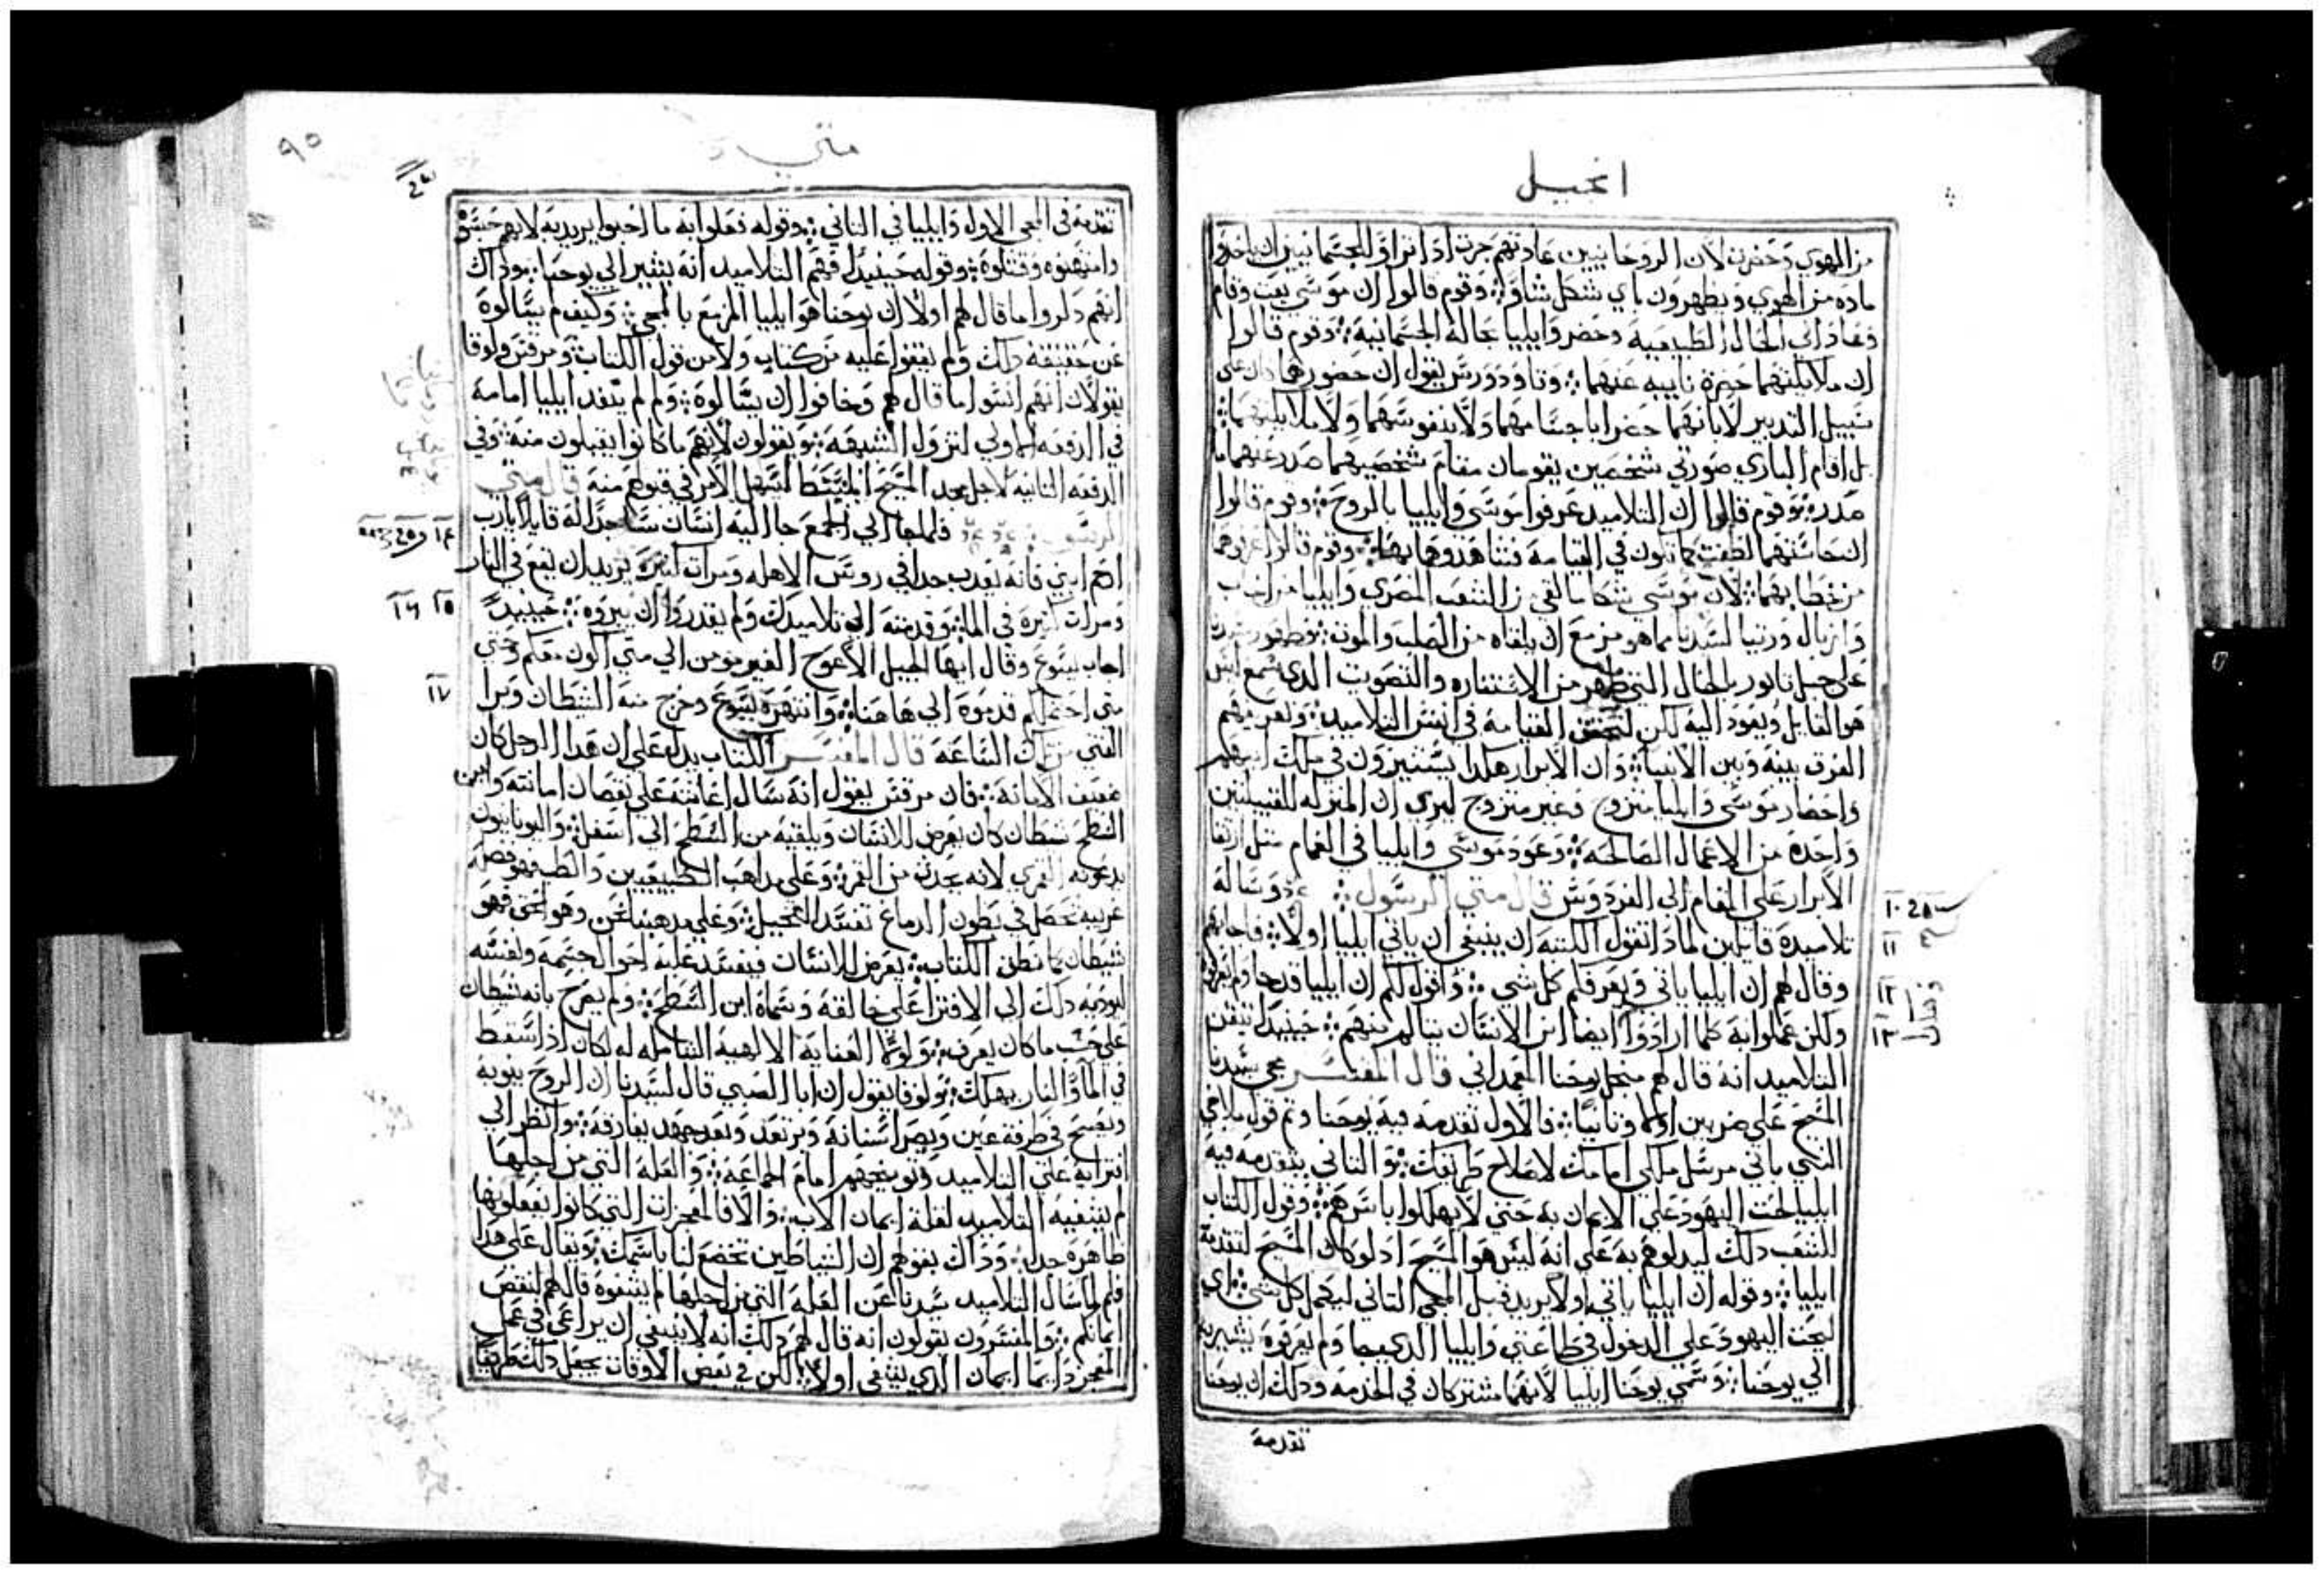 انجيل
من الهوي وحضرت لان الروحانيين عادتهم جرت اذا تراوا للجسمانيين ان ياخدوا
ماده من الهوي ويظهرون باي شكل شاوا وقوم قالوا ان موسي بعت وقام
وعاد الي الحال الطبيعيه وحضر وايليا بحاله الجسمانيه وقوم قالوا
ان ملايكتهما حضرة نايبه عنهما وتاودورس يقول ان حضورهما كان علي
سبيل التدبير لا بانهما حضرا باجسامهما ولا بنفوسهما ولا ملايكتهما
بل اقام الباري صورتي شخصين يقومان مقام شخصيهما صدر عنهما ما
صدر وقوم قالوا ان التلاميد عرفوا موسي وايليا بالروح وقوم قالوا
ان نحاستهما لطفت كما تكون في القيامة فشاهدوهما بها وقوم قالوا عرفوهما
من خطابهما لان موسي شكا ما لقي من الشعب المصري وايليا من احاب
وازبال ورتيا لسيدنا مما هو مزمع ان يلقاه من الصلب والموت وظهور سيدنا
علي جبل تابور بالحال التي ظهر من الاستناره والتصويت الدي سمع ليس
هو القايل ويعود اليه لكن لتحقق القيامة في انفس التلاميد وتعريفهم
الفرق بينه وبين الانبيا وان الابرار هكدا يستنيرون في ملك ابيهم
واحضار موسي وايليا متزوج وغير متزوج ليري ان المنزله للقبيلتين
واحدة من الاعمال الصالحة وعود موسي وايليا في الغمام مثل ارتقا
الابرار علي الغمام الي الفردوس قال متي الرسول وساله
تلاميده قايلين لمادا تقول الكتبه ان ينبغي ان ياتي ايليا اولا فاجابهم
وقال لهم ان ايليا ياتي ويعرفكم كل شي واقول لكم ان ايليا قد جا ولم يعرفوه
ولكن عملوا به كلما ارادوا ايضا ابن الانسان يتالم منهم حينيدا تيقن
التلاميد انه قال لهم من اجل يوحنا المعمداني قال المفسر مجي سيدنا
المسيح علي ضربين اولا وتانيا فالاول تقدمه فيه يوحنا وتم قول ملاخي
النبي ياتي مرسل ملاكي امامك لاصلاح طريقك والتاني يتقدمه فيه
ايليا لحت اليهود علي الايمان به حتي لا يهلكوا باسرهم وقول الكتاب
للشعب دلك ليدلوهم به علي انه ليس هو المسيح اد لو كان المسيح لتقدمه
ايليا وقوله ان ايليا ياتي اولا يريد قبل المجي التاني ليكمل كل شي اي
ليحت اليهود علي الدخول في طاعتي وايليا الدي جا ولم يعرفوه يشير به
الي يوحنا وسمي يوحنا ايليا لانهما مشتركان في الخدمه ودلك ان يوحنا
تقدمة
١٠
١١
١٢
١٣
متي
٩٥
تقدمة في المجي الاول وايليا في التاني وقوله فعلوا به ما احبوا يريد به لانهم حبسوه
وامتهنوه وقتلوه وقوله حينيدا فهم التلاميد انه يشير الي يوحنا وداك
انهم دكروا ما قال لهم اولا ان يوحنا هو ايليا المزمع بالمجي وكيف لم يسالوه
عن حقيقة دلك ولم يقفوا عليه من كتابه ولا من قول الكتاب ومرقس ولوقا
يقولان انهم انسوا ما قال لهم وخافوا ان يسالوه ولم لم ينفد ايليا امامه
في الدفعه الاولي لنزول الشبهه ويقولون لانهم ما كانوا يقبلون منه وفي
الدفعه التانيه لاجل مجد المسيح المنبسط ليسهل الامر في قبولهم منه قال متي
الرسول فلما جا الي الجمع جا اليه انسان ساجدا له قايلا يارب
ارحم ابني فانه يعدب جدا في روس الاهله ومرات كثيرة يريد ان يقع في النار
ومرات كتيرة في الما وقدمته الي تلاميدك ولم يقدروا ان يبروه حينيدا
اجاب يسوع وقال ايها الجيل الاعوج الغير مومن الي متي اكون معكم وحتي
متي احتملكم قدموه الي هاهنا وانتهره يسوع وخرج منه الشيطان وبرا
الفتي من تلك الساعة قال المفسر الكتاب يدل علي ان هدا الرجل كان
ضعيف الامانه فان مرقس يقول انه سال اغاتته علي نقصان امانته وابن
السطح شيطان كان يعرض للانسان ويلقيه من السطح الي اسفل واليونانيون
يدعونه القمري لانه يحدث من القمر وعلي مداهب الطبيعيين والطب هو فضله
غريبه تحصل في بطون الدماغ تفسد التخييل وعلي مدهبنا نحن وهو الحق فهو
شيطان كما نطق الكتاب يعرض للانسان فيفسد عليه احوال جسمه ونفسه
ليوديه دلك الي الافترا علي خالقه وسماه ابن السطح ولم يصرح بانه شيطان
علي حسب ما كان يعرف ولولا العنايه الالهيه الشامله له لكان ادا سقط
في الما والنار يهلك ولوقا يقول ان ابا الصبي قال لسيدنا ان الروح ينوبه
ويصيح في طرفة عين ويصر اسنانه ويرتعد وبعد جهد يفارقه وانظر الي
افترايه علي التلاميد وتوبيخهم امام الجماعه والعلة التي من اجلها
لم يشفيه التلاميد لقلة ايمان الاب والا فالمعجزات التي كانوا يفعلونها
ظاهرة جدا وداك بقولهم ان الشياطين تخضع لنا باسمك ويقال علي هدا
فلم لما سال التلاميد سيدنا عن العلة التي من اجلها لم يشفوه قال لهم لنقص
ايمانكم والمفسرون يقولون انه قال لهم دلك انه لا ينبغي ان يراعي في عمل
المعجز دايما ايمان الدي يشفي اولا لكن في بعض الاوقات يجعل دلك طريقا
١٤
١٥ ١٦
١٧